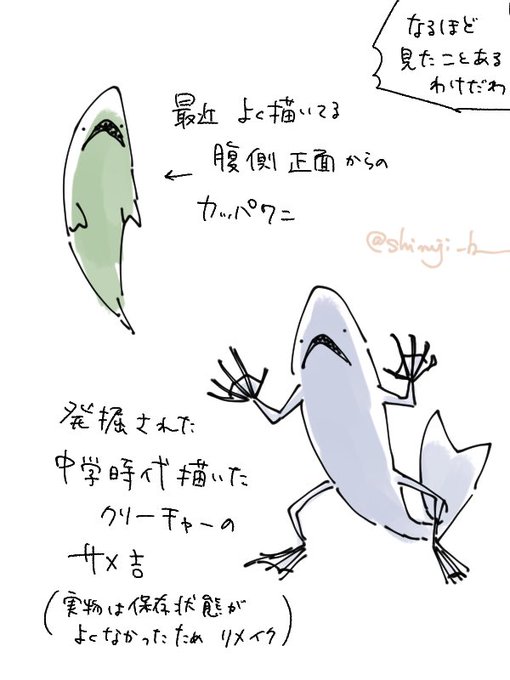 なるほど
見たことある
わけだわ
最近 よく描いてる
← 腹側正面からの
カッパワニ
@shinuji_h
発掘された
中学時代描いた
クリーチャーの
サメ吉
(実物は保存状態が
よくなかったため リメイク)